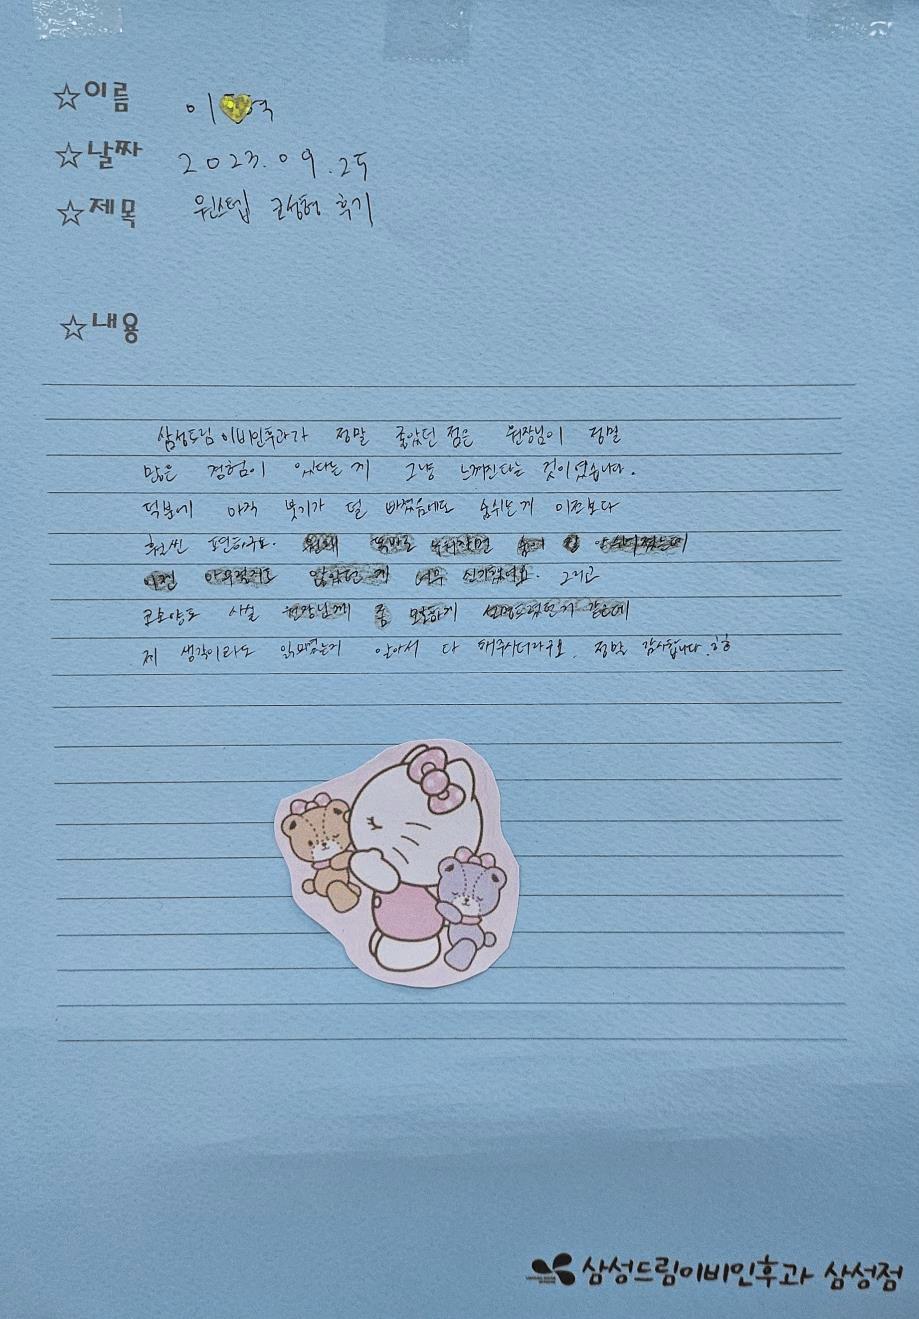 ☆이름 이 역
☆날짜 2023.09.25
☆제목 원스텝 코성형 후기
☆내용
삼성드림이비인후과가 정말 좋았던 점은 원장님이 정말
많은 경험이 있다는 게 그냥 느껴진다는 것이였습니다.
덕분에 아직 붓기가 덜 빠졌음에도 숨쉬는게 이전보다
훨씬 편하구요. 원래 똑바로 누워자면 숨이
아무렇지도 않았던 게 너무 신기했어요. 그리고
코모양도 사실 원장님께 좀 모호하게 설명드렸던거 같은데
제 생각이라도 읽으셨는지 알아서 다 해주시더라구요. 정말 감사합니다.ㅎㅎ
삼성드림이비인후과 삼성점